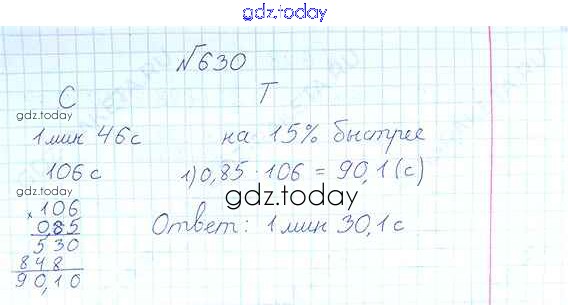 gdz.today
№630
С Т
gdz.today
1 мин 46 с на 15% быстрее
106 с 1) 0,85 · 106 = 90,1 (с)
gdz.today
gdz.today
× 106
0,85
530
848
90,10
Ответ: 1 мин 30,1 с
gdz.today